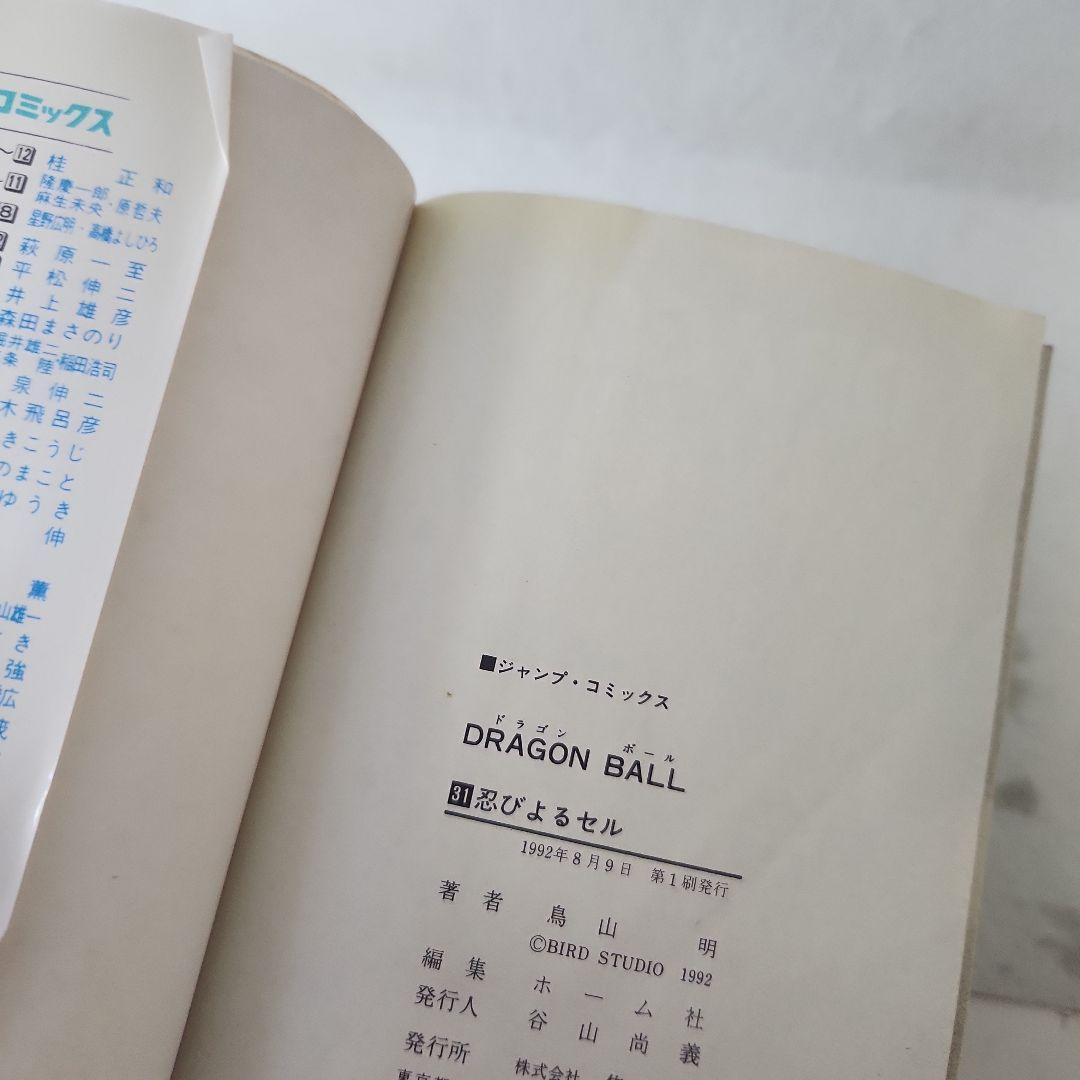 コミックス
～12 桂 正 和
～11 隆慶一郎・原哲夫
麻生未央
8 星野広明・高橋よしひろ
萩 原 一 至
平 松 伸 二
井 上 雄 彦
森田まさのり
堀井雄二
条 陸・稲田浩司
泉 伸 二
木 飛 呂 彦
きこうじ
のまこと
ゆうき
伸
薫
山雄一
き
強
広
■ジャンプ・コミックス
ドラゴン ボール
DRAGON BALL
31 忍びよるセル
1992年8月9日 第1刷発行
著 者 鳥 山 明
©BIRD STUDIO 1992
編 集 ホ ー ム 社
発行人 谷 山 尚 義
発行所 株式会社
東京都